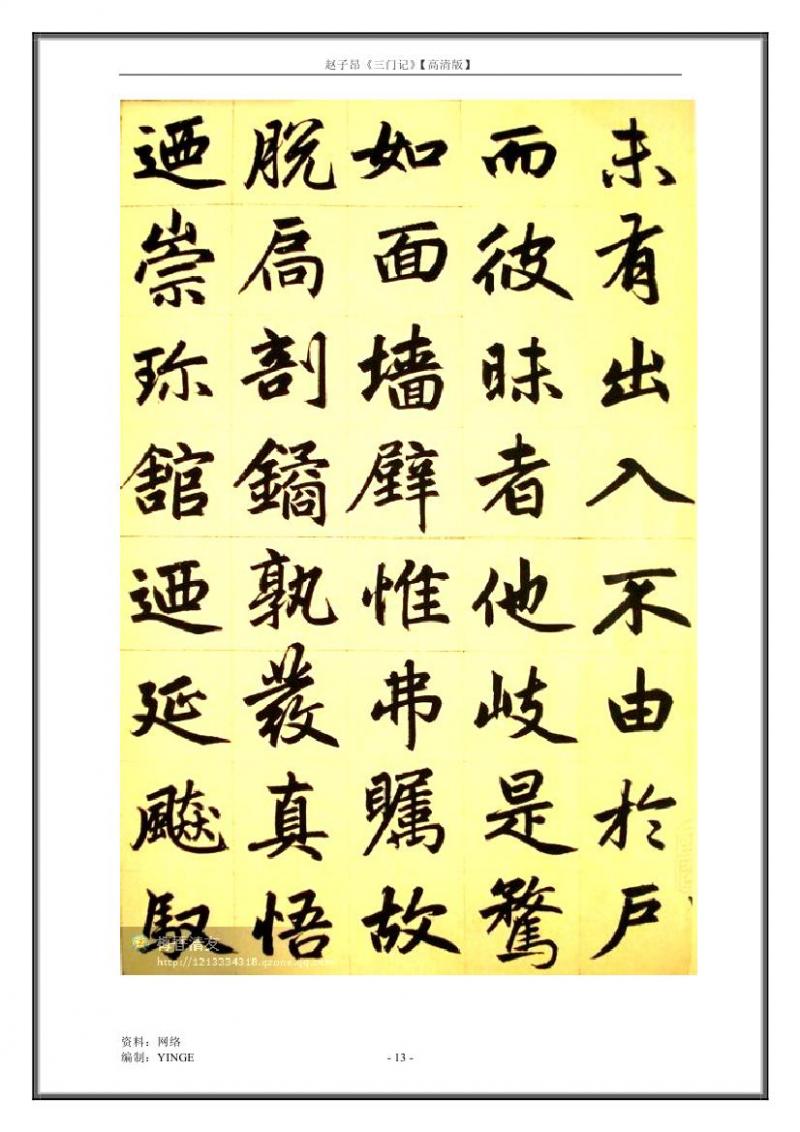 赵子昂《三门记》【高清版】
未有出入不由於戶
而彼昧者他岐是騖
如面墙壁惟弗矚故
脱扃剖鐍孰發真悟
迺崇珎舘迺延飈馭
樽香清友
http://1213334318.qzone.qq.com
资料：网络
编制：YINGE
- 13 -